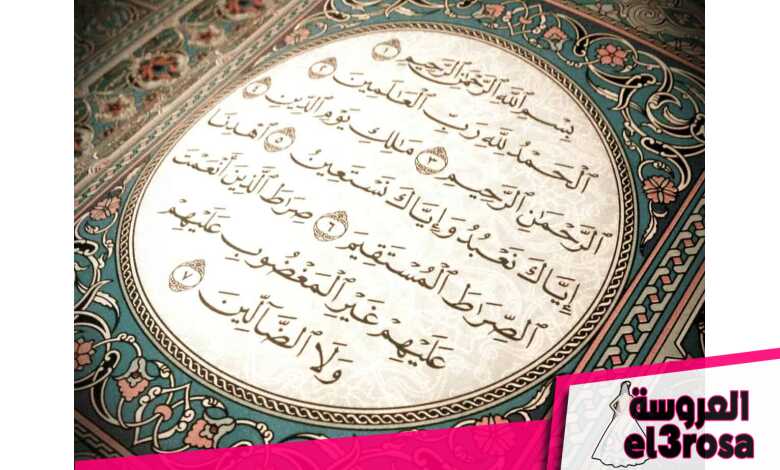 بِسْمِ ٱللَّهِ ٱلرَّحْمَٰنِ ٱلرَّحِيمِ ١
ٱلْحَمْدُ لِلَّهِ رَبِّ ٱلْعَٰلَمِينَ ٢
ٱلرَّحْمَٰنِ ٱلرَّحِيمِ ٣ مَٰلِكِ يَوْمِ ٱلدِّينِ ٤
إِيَّاكَ نَعْبُدُ وَإِيَّاكَ نَسْتَعِينُ ٥ ٱهْدِنَا
ٱلصِّرَٰطَ ٱلْمُسْتَقِيمَ ٦ صِرَٰطَ ٱلَّذِينَ أَنْعَمْتَ
عَلَيْهِمْ غَيْرِ ٱلْمَغْضُوبِ عَلَيْهِمْ
وَلَا ٱلضَّآلِّينَ ٧
العروسة
el3rosa